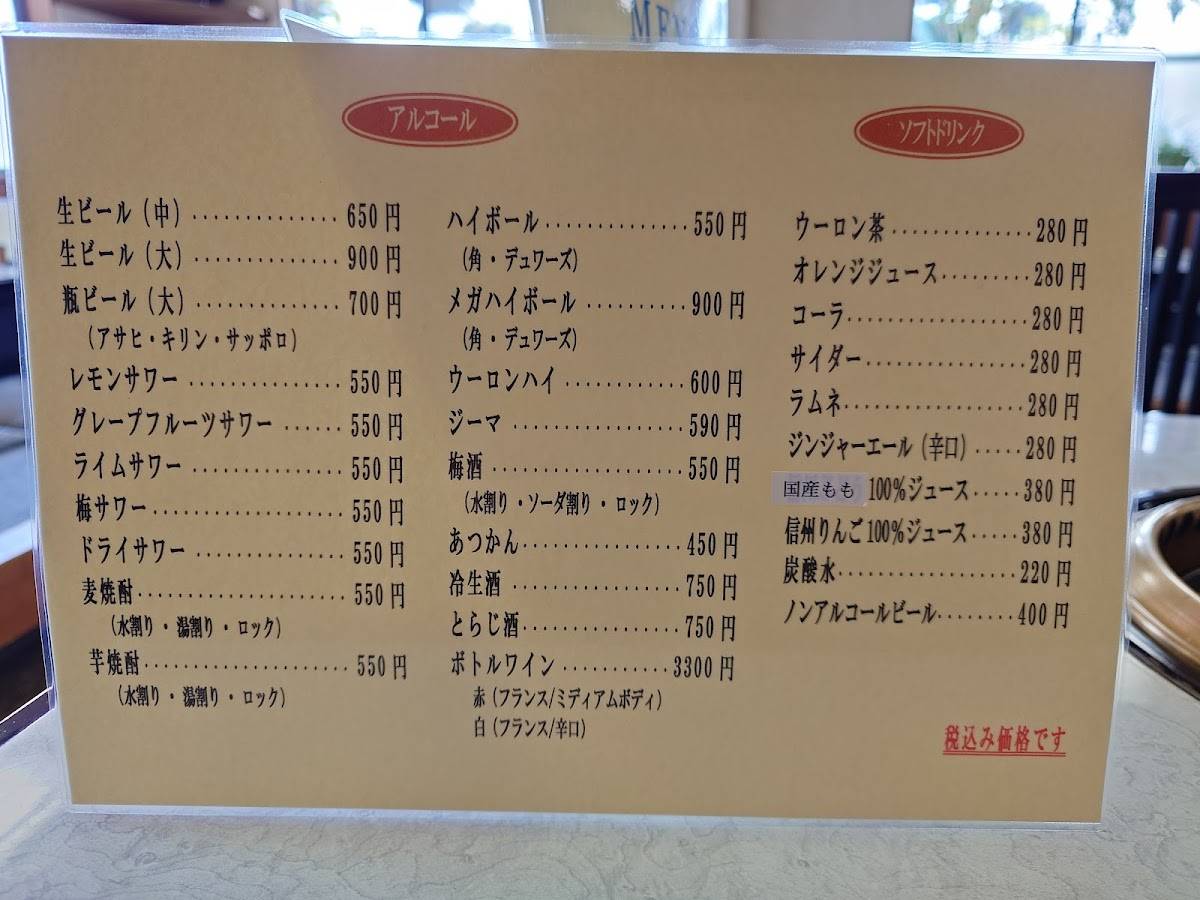 MEN
アルコール
生ビール（中）···············650円
生ビール（大）···············900円
瓶ビール（大）···············700円
（アサヒ・キリン・サッポロ）
レモンサワー···············550円
グレープフルーツサワー······550円
ライムサワー···············550円
梅サワー··················550円
ドライサワー···············550円
麦焼酎·····················550円
（水割り・湯割り・ロック）
芋焼酎·····················550円
（水割り・湯割り・ロック）
ハイボール···············550円
（角・デュワーズ）
メガハイボール···········900円
（角・デュワーズ）
ウーロンハイ·············600円
ジーマ··················590円
梅酒····················550円
（水割り・ソーダ割り・ロック）
あつかん·················450円
冷生酒··················750円
とらじ酒·················750円
ボトルワイン···········3300円
赤（フランス/ミディアムボディ）
白（フランス/辛口）
ソフトドリンク
ウーロン茶···············280円
オレンジジュース·········280円
コーラ···················280円
サイダー·················280円
ラムネ···················280円
ジンジャーエール（辛口）·····280円
国産もも 100%ジュース·····380円
信州りんご100%ジュース·····380円
炭酸水···················220円
ノンアルコールビール········400円
税込み価格です